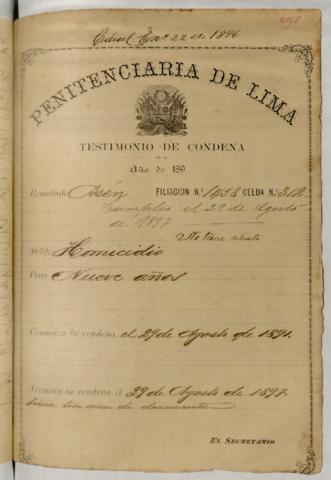 Carcel En° 22 de 1896
PENITENCIARIA DE LIMA
TESTIMONIO DE CONDENA
Año de 189
Rematado Asén FILIACION N.° 1458 CELDA N.° 312
Cumplió el 29 de Agosto
de 1897
No tiene retrato
Delito Homicidio
Pena Nueve años
Comienza la condena el 29 de Agosto de 1891.
Termina la condena el 29 de Agosto de 1897.
tiene tres años de descuento
EL SECRETARIO